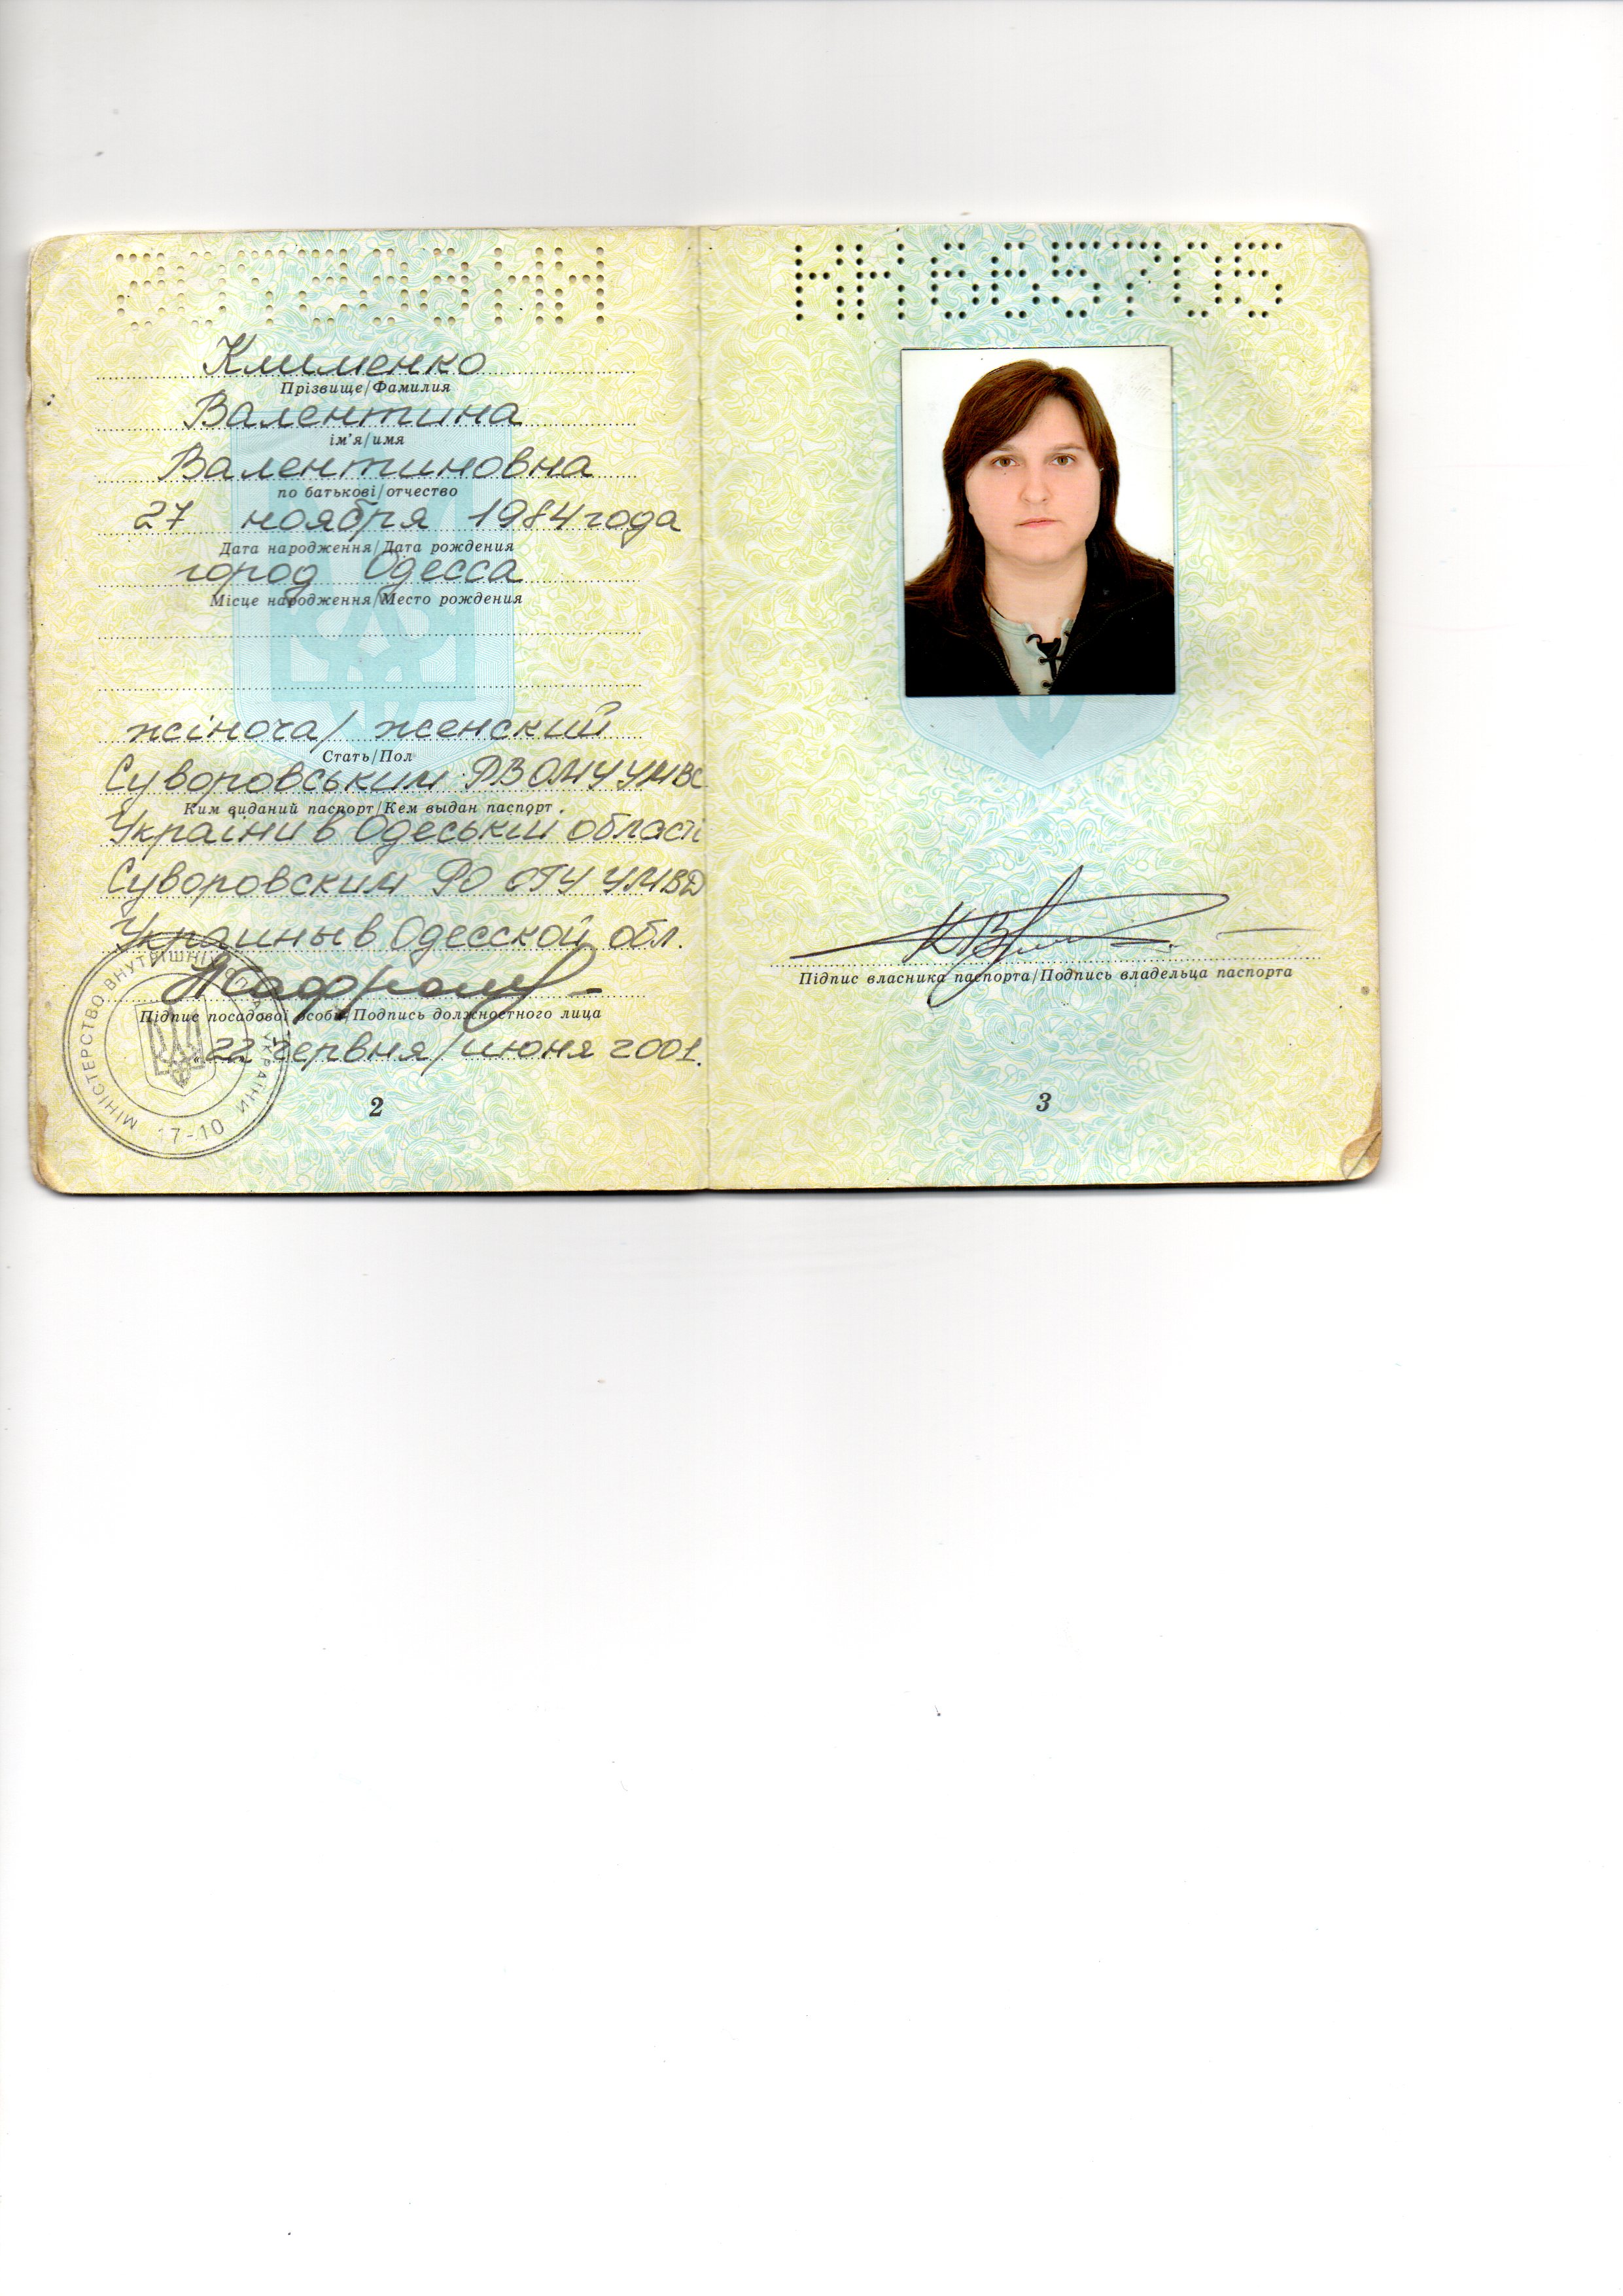 Клименко
Прізвище/Фамилия
Валентина
ім'я/имя
Валентиновна
по батькові/отчество
27 ноября 1984 года
Дата народження/Дата рождения
город Одесса
Місце народження/Место рождения
жіноча/ женский
Стать/Пол
Суворовським РВ ОМУ УМВС
Ким виданий паспорт/Кем выдан паспорт
України в Одеській області
Суворовским РО ОГУ УМВД
Украины в Одесской обл.
Підпис посадової особи/Подпись должностного лица
22 червня/июня 2001.
МІНІСТЕРСТВО ВНУТРІШНІХ СПРАВ УКРАЇНИ
17-10
2
КК665705
Підпис власника паспорта/Подпись владельца паспорта
3